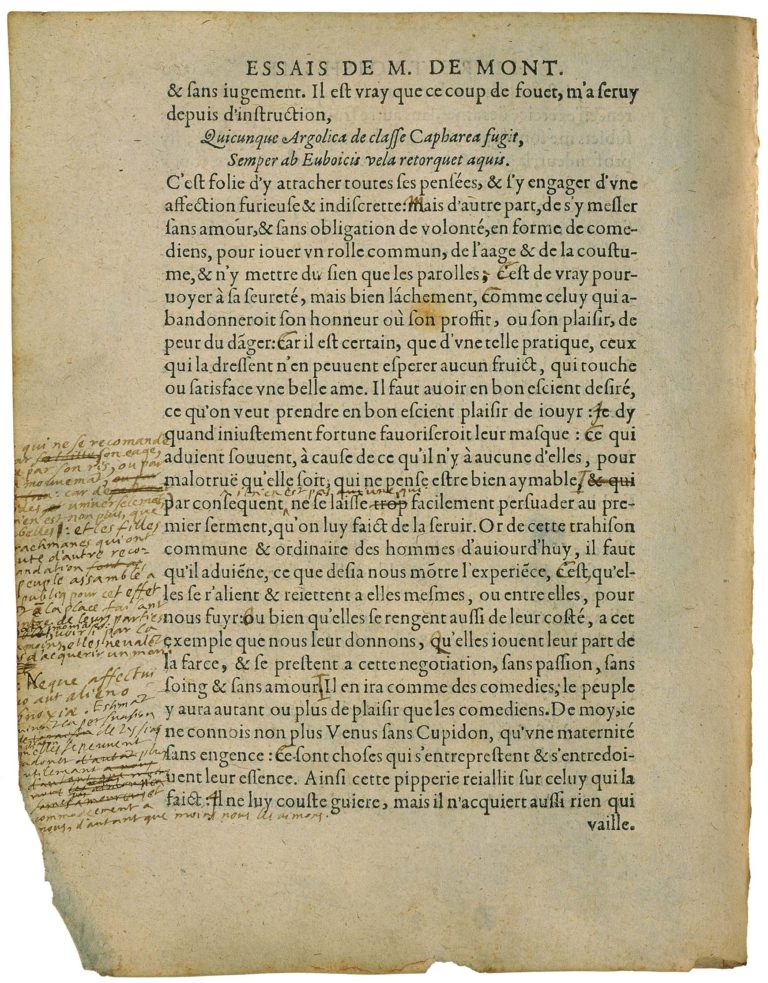 ESSAIS DE M. DE MONT.
& sans iugement. Il est vray que ce coup de fouet, m'a seruy
depuis d'instruction,
Quicunque Argolica de classe Capharea fugit,
Semper ab Euboicis vela retorquet aquis.
C'est folie d'y attacher toutes ses pensées, & s'y engager d'vne
affection furieuse & indiscrette: Mais d'autre part, de s'y mesler
sans amour, & sans obligation de volonté, en forme de come-
diens, pour iouer vn rolle commun, de l'aage & de la coustu-
me, & n'y mettre du sien que les parolles; C'est de vray pour-
uoyer à sa seureté, mais bien láchement, comme celuy qui a-
bandonneroit son honneur où son proffit, ou son plaisir, de
peur du dãger: Car il est certain, que d'vne telle pratique, ceux
qui la dressent n'en peuuent esperer aucun fruict, qui touche
ou satisface vne belle ame. Il faut auoir en bon escient desiré,
ce qu'on veut prendre en bon escient plaisir de iouyr : Je dy
quand iniustement fortune fauoriseroit leur masque : Ce qui
aduient souuent, à cause de ce qu'il n'y à aucune d'elles, pour
malotruë qu'elle soit, qui ne pense estre bien aymable, & qui
par consequent ne se laisse trop facilement persuader au pre-
mier serment, qu'on luy faict de la seruir. Or de cette trahison
commune & ordinaire des hommes d'auiourd'huy, il faut
qu'il aduiẽne, ce que desia nous mõtre l'experiẽce, C'est, qu'el-
les se r'alient & reiettent a elles mesmes, ou entre elles, pour
nous fuyr: ou bien qu'elles se rengent aussi de leur costé, a cet
exemple que nous leur donnons, qu'elles iouent leur part de
la farce, & se prestent a cette negotiation, sans passion, sans
soing & sans amour: Il en ira comme des comedies, le peuple
y aura autant ou plus de plaisir que les comediens. De moy, ie
ne connois non plus Venus sans Cupidon, qu'vne maternité
sans engence : Ce sont choses qui s'entreprestent & s'entredoi-
uent leur essence. Ainsi cette pipperie reiallit sur celuy qui la
faict: Il ne luy couste guiere, mais il n'acquiert aussi rien qui
vaille.
qui ne se recomande
son eage,
par son ris, ou par
mouuemãt,
car de
uniuerselemãt
n'en est non plus que
belles : et les filles
rachmanes qui ont
d'autre reco-
mandation
peuple assamblé a
publiq pour cet effet
la place fai ant
de leurs parties
d'acquerir un mari
Neque affectui
aut alieno
noxiæ. Estimãt
persuasion
commodeement a
nous, d'autant que moins nous les aimons.